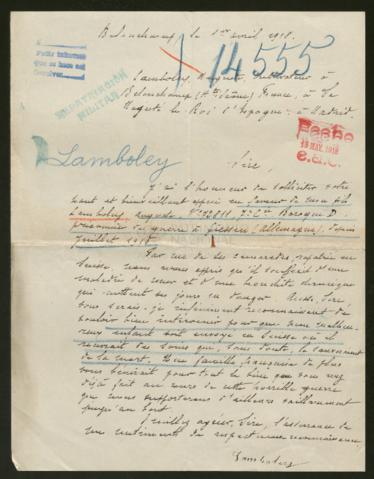 Belonchamp, le 1er avril 1918.
Petit informe
que se hace así
14555
REPATRIACIÓN
MILITAR
Lamboley, Auguste, cultivateur à
Belonchamp (Hte Saône) France, à Sa
Majesté le Roi d'Espagne, à Madrid.
Fecho
13 MAY. 1918
Lamboley
Sire,
J'ai l'honneur de solliciter votre
haut et bienveillant appui en faveur de mon fils
Lamboley, Auguste, Baraque D
prisonnier de guerre à Giessen (Allemagne), depuis
Juillet
Par un de ses camarades, rapatrié en
Suisse, nous avons appris qu'il souffrait d'une
maladie de cœur et d'une bronchite chronique
qui mettent ses jours en danger. Aussi, Sire,
vous serais-je infiniment reconnaissant de
vouloir bien intervenir pour que mon malheu-
reux enfant soit envoyé en Suisse où il
recevrait des soins qui, sans doute, le sauveraient
de la mort. Une famille française de plus
vous bénirait pour tout le bien que vous avez
déjà fait au cours de cette horrible guerre
que nous supporterons d'ailleurs vaillamment
jusqu'au bout.
Veuillez agréer, Sire, l'assurance de
mes sentiments de respectueuse reconnaissance.
Lamboley